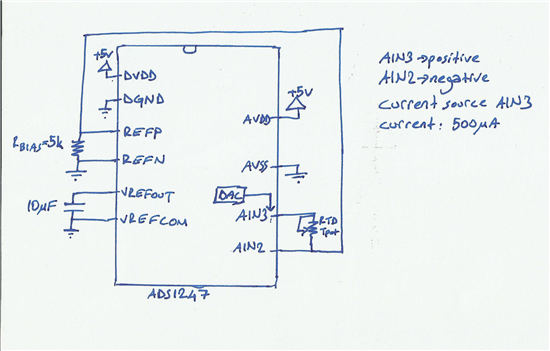 +5V
DVDD
DGND
REFP
RBIAS=5k
REFN
VREFOUT
10µF
VREFCOM
ADS1247
+5V
AVDD
AVSS
DAC
AIN3
RTD
Tpot
AIN2
AIN3→positive
AIN2→negative
current source AIN3
current: 500µA